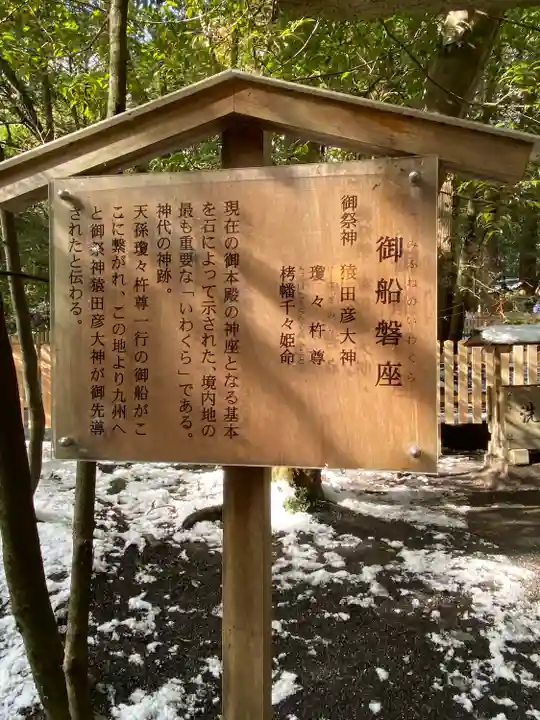 みふねのいわくら
御船磐座
御祭神 猿田彦大神
瓊々杵尊
栲幡千々姫命
現在の御本殿の神座となる基本
を石によって示された、境内地の
最も重要な「いわくら」である。
神代の神跡。
天孫瓊々杵尊一行の御船がこ
こに繋がれ、この地より九州へ
と御祭神猿田彦大神が御先導
されたと伝わる。
洗